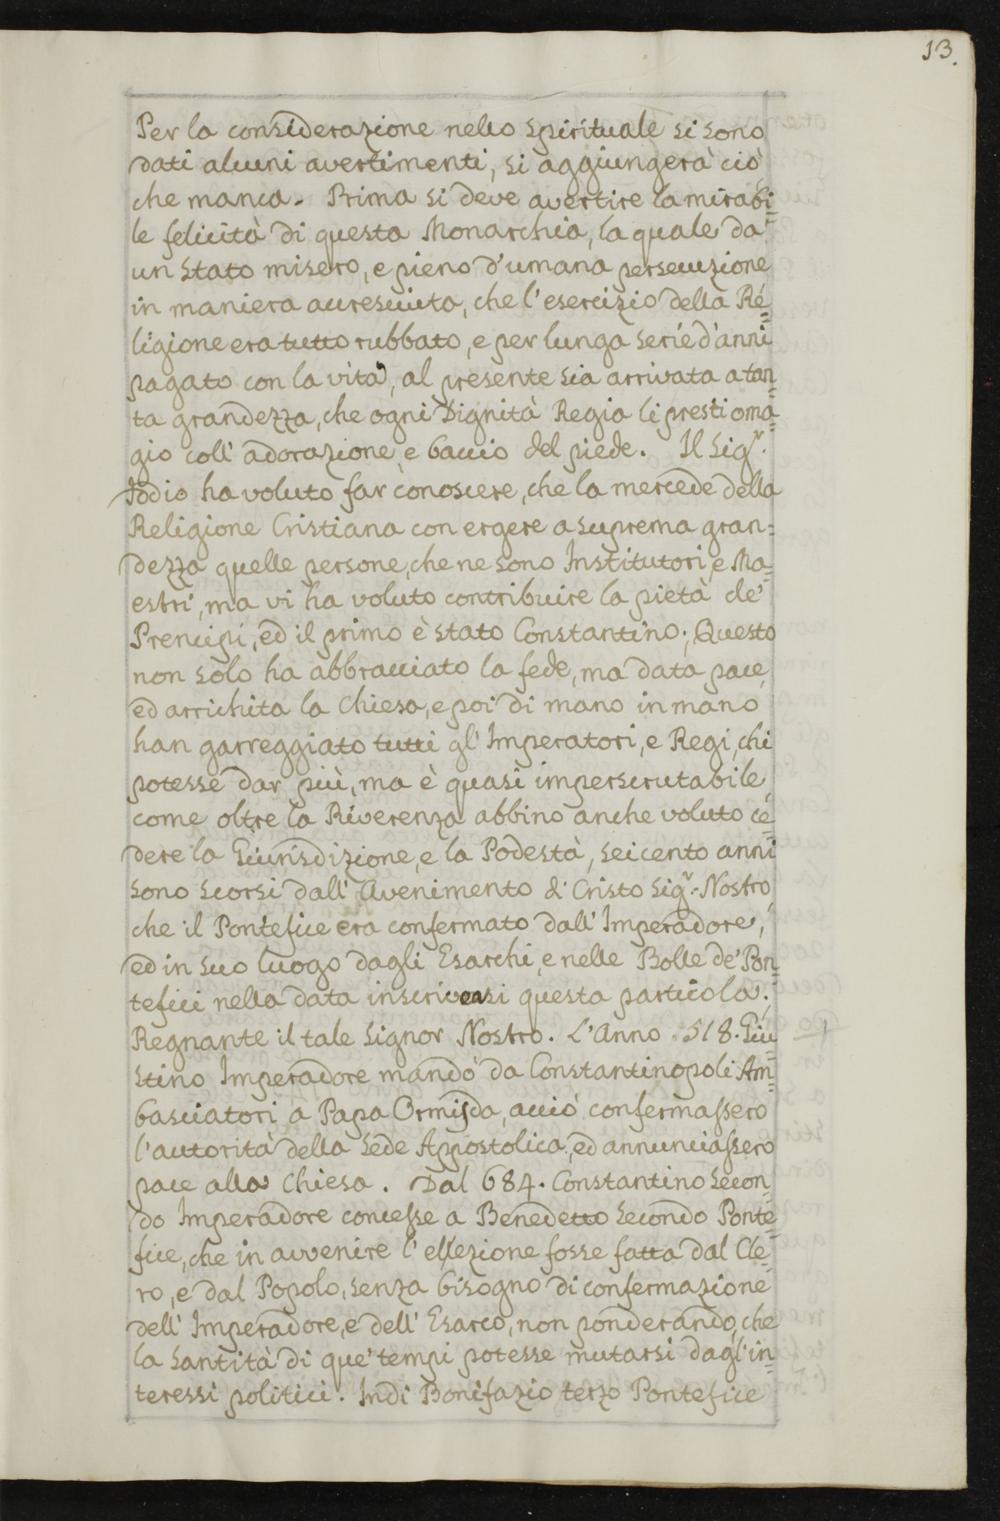 13.
Per la considerazione nello Spirituale si sono
dati alcuni avertimenti, si aggiungerà ciò
che manca. Prima si deve avertire la mirabi=
le felicità di questa Monarchia, la quale da
un Stato misero, e pieno d'umana persecuzione
in maniera accresciuta, che l'esercizio della Re=
ligione era tutto rubbato, e per lunga serie d'anni
pagato con la vita, al presente sia arrivata a tan=
ta grandezza, che ogni Dignità Regia li presti oma=
gio coll' adorazione, e baccio del piede. Il Sigr.
Iddio ha voluto far conoscere, che la mercede della
Religione Cristiana con ergere a suprema gran=
dezza quelle persone, che ne sono Institutori, e Ma=
estri, ma vi ha voluto contribuire la pietà de'
Prencipi, ed il primo è stato Constantino; Questo
non solo ha abbracciato la fede, ma data pace,
ed arrichita la Chiesa, e poi di mano in mano
han garreggiato tutti gl' Imperatori, e Regi, chi
potesse dar più, ma è quasi imperscrutabile,
come oltre la Riverenza abbino anche voluto ce=
dere la Giurisdizione, e la Podestà, seicento anni
sono scorsi dall' Avenimento di Cristo Sigr. Nostro
che il Pontefice era confermato dall' Imperadore,
ed in suo luogo dagli Esarchi, e nelle Bolle de' Pon=
tefici nella data inscriveasi questa particola:
Regnante il tale Signor Nostro. L'Anno 518. Giu=
stino Imperadore mandò da Constantinopoli Am=
basciatori a Papa Ormisda, acciò confermassero
l'autorità della Sede Appostolica, ed annunciassero
pace alla Chiesa. Dal 684. Constantino Secon=
do Imperadore concesse a Benedetto Secondo Ponte=
fice, che in avvenire l'ellezione fosse fatta dal Cle=
ro, e dal Popolo, senza bisogno di confermazione
dell' Imperadore, e dell' Esarco, non ponderando, che
la Santità di que' tempi potesse mutarsi dagl' in=
teressi politici. Indi Bonifazio terzo Pontefice